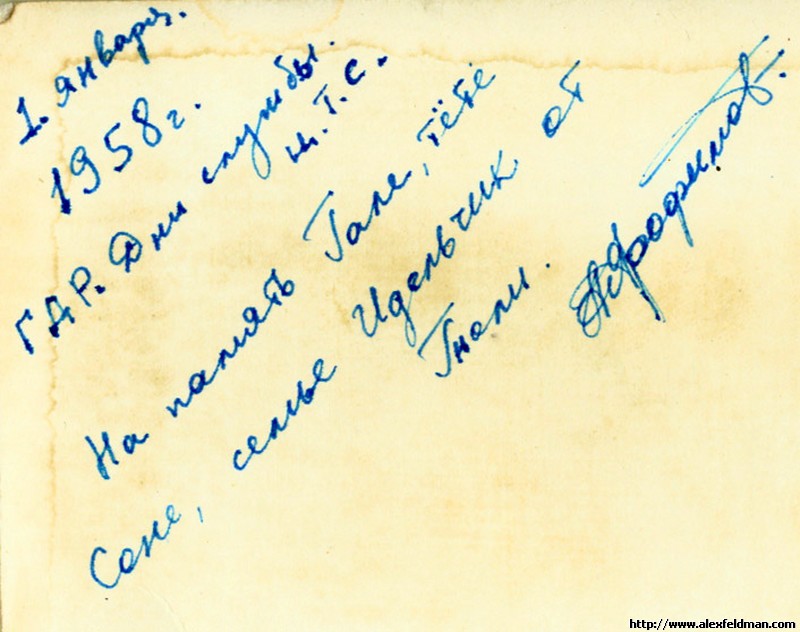 1. января.
1958 г.
ГДР. Дни службы.
На память Гале, тёте
Соне, семье Идельчик от
http://www.alexfeldman.com